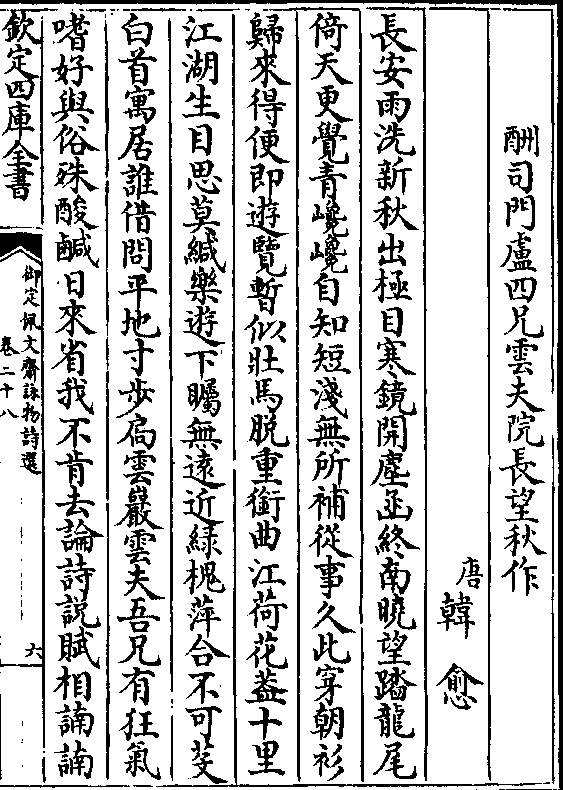 酬司門盧四兄雲夫院長望秋作
唐韓愈
長安雨洗新秋出極目寒鏡開塵函終南曉望踏龍尾
倚天更覺青巉巉自知短淺無所補從事久此穿朝衫
歸來得便即遊覽暫似壯馬脱重銜曲江荷花蓋十里
江湖生目思莫緘樂遊下矚無遠近緑槐萍合不可芟
白首寓居誰借問平地寸步扃雲巖雲夫吾兄有狂氣
嗜好與俗殊酸鹹日來省我不肯去論詩説賦相諵諵
欽定四庫全書
御定佩文齋詠物詩選
卷二十八
六